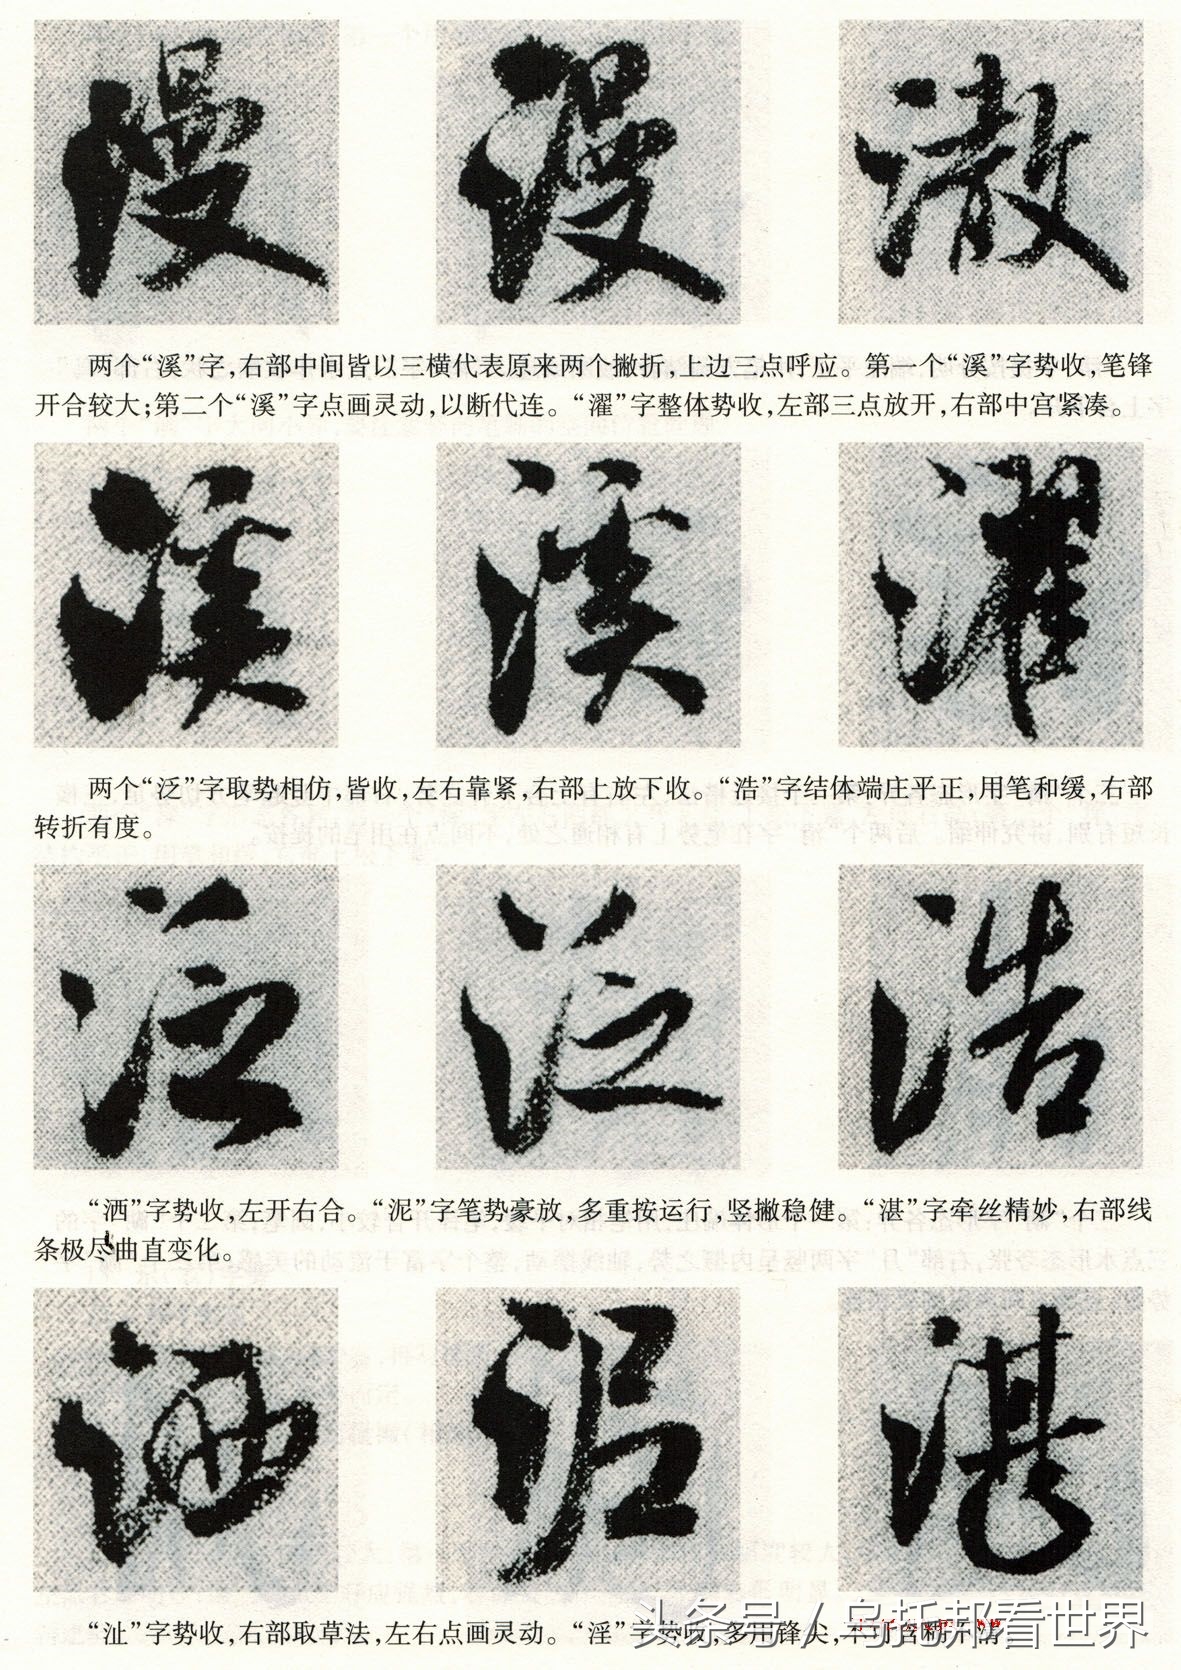 漫 漫 澈
两个“溪”字,右部中间皆以三横代表原来两个撇折,上边三点呼应。第一个“溪”字势收,笔锋
开合较大;第二个“溪”字点画灵动,以断代连。“濯”字整体势收,左部三点放开,右部中宫紧凑。
溪 溪 濯
两个“泛”字取势相仿,皆收,左右靠紧,右部上放下收。“浩”字结体端庄平正,用笔和缓,右部
转折有度。
泛 泛 浩
“洒”字势收,左开右合。“泥”字笔势豪放,多重按运行,竖撇稳健。“湛”字牵丝精妙,右部线
条极尽曲直变化。
洒 泥 湛
“沚”字势收,右部取草法,左右点画灵动。“淫”字势收,多用锋尖,
头条号/乌托邦看世界